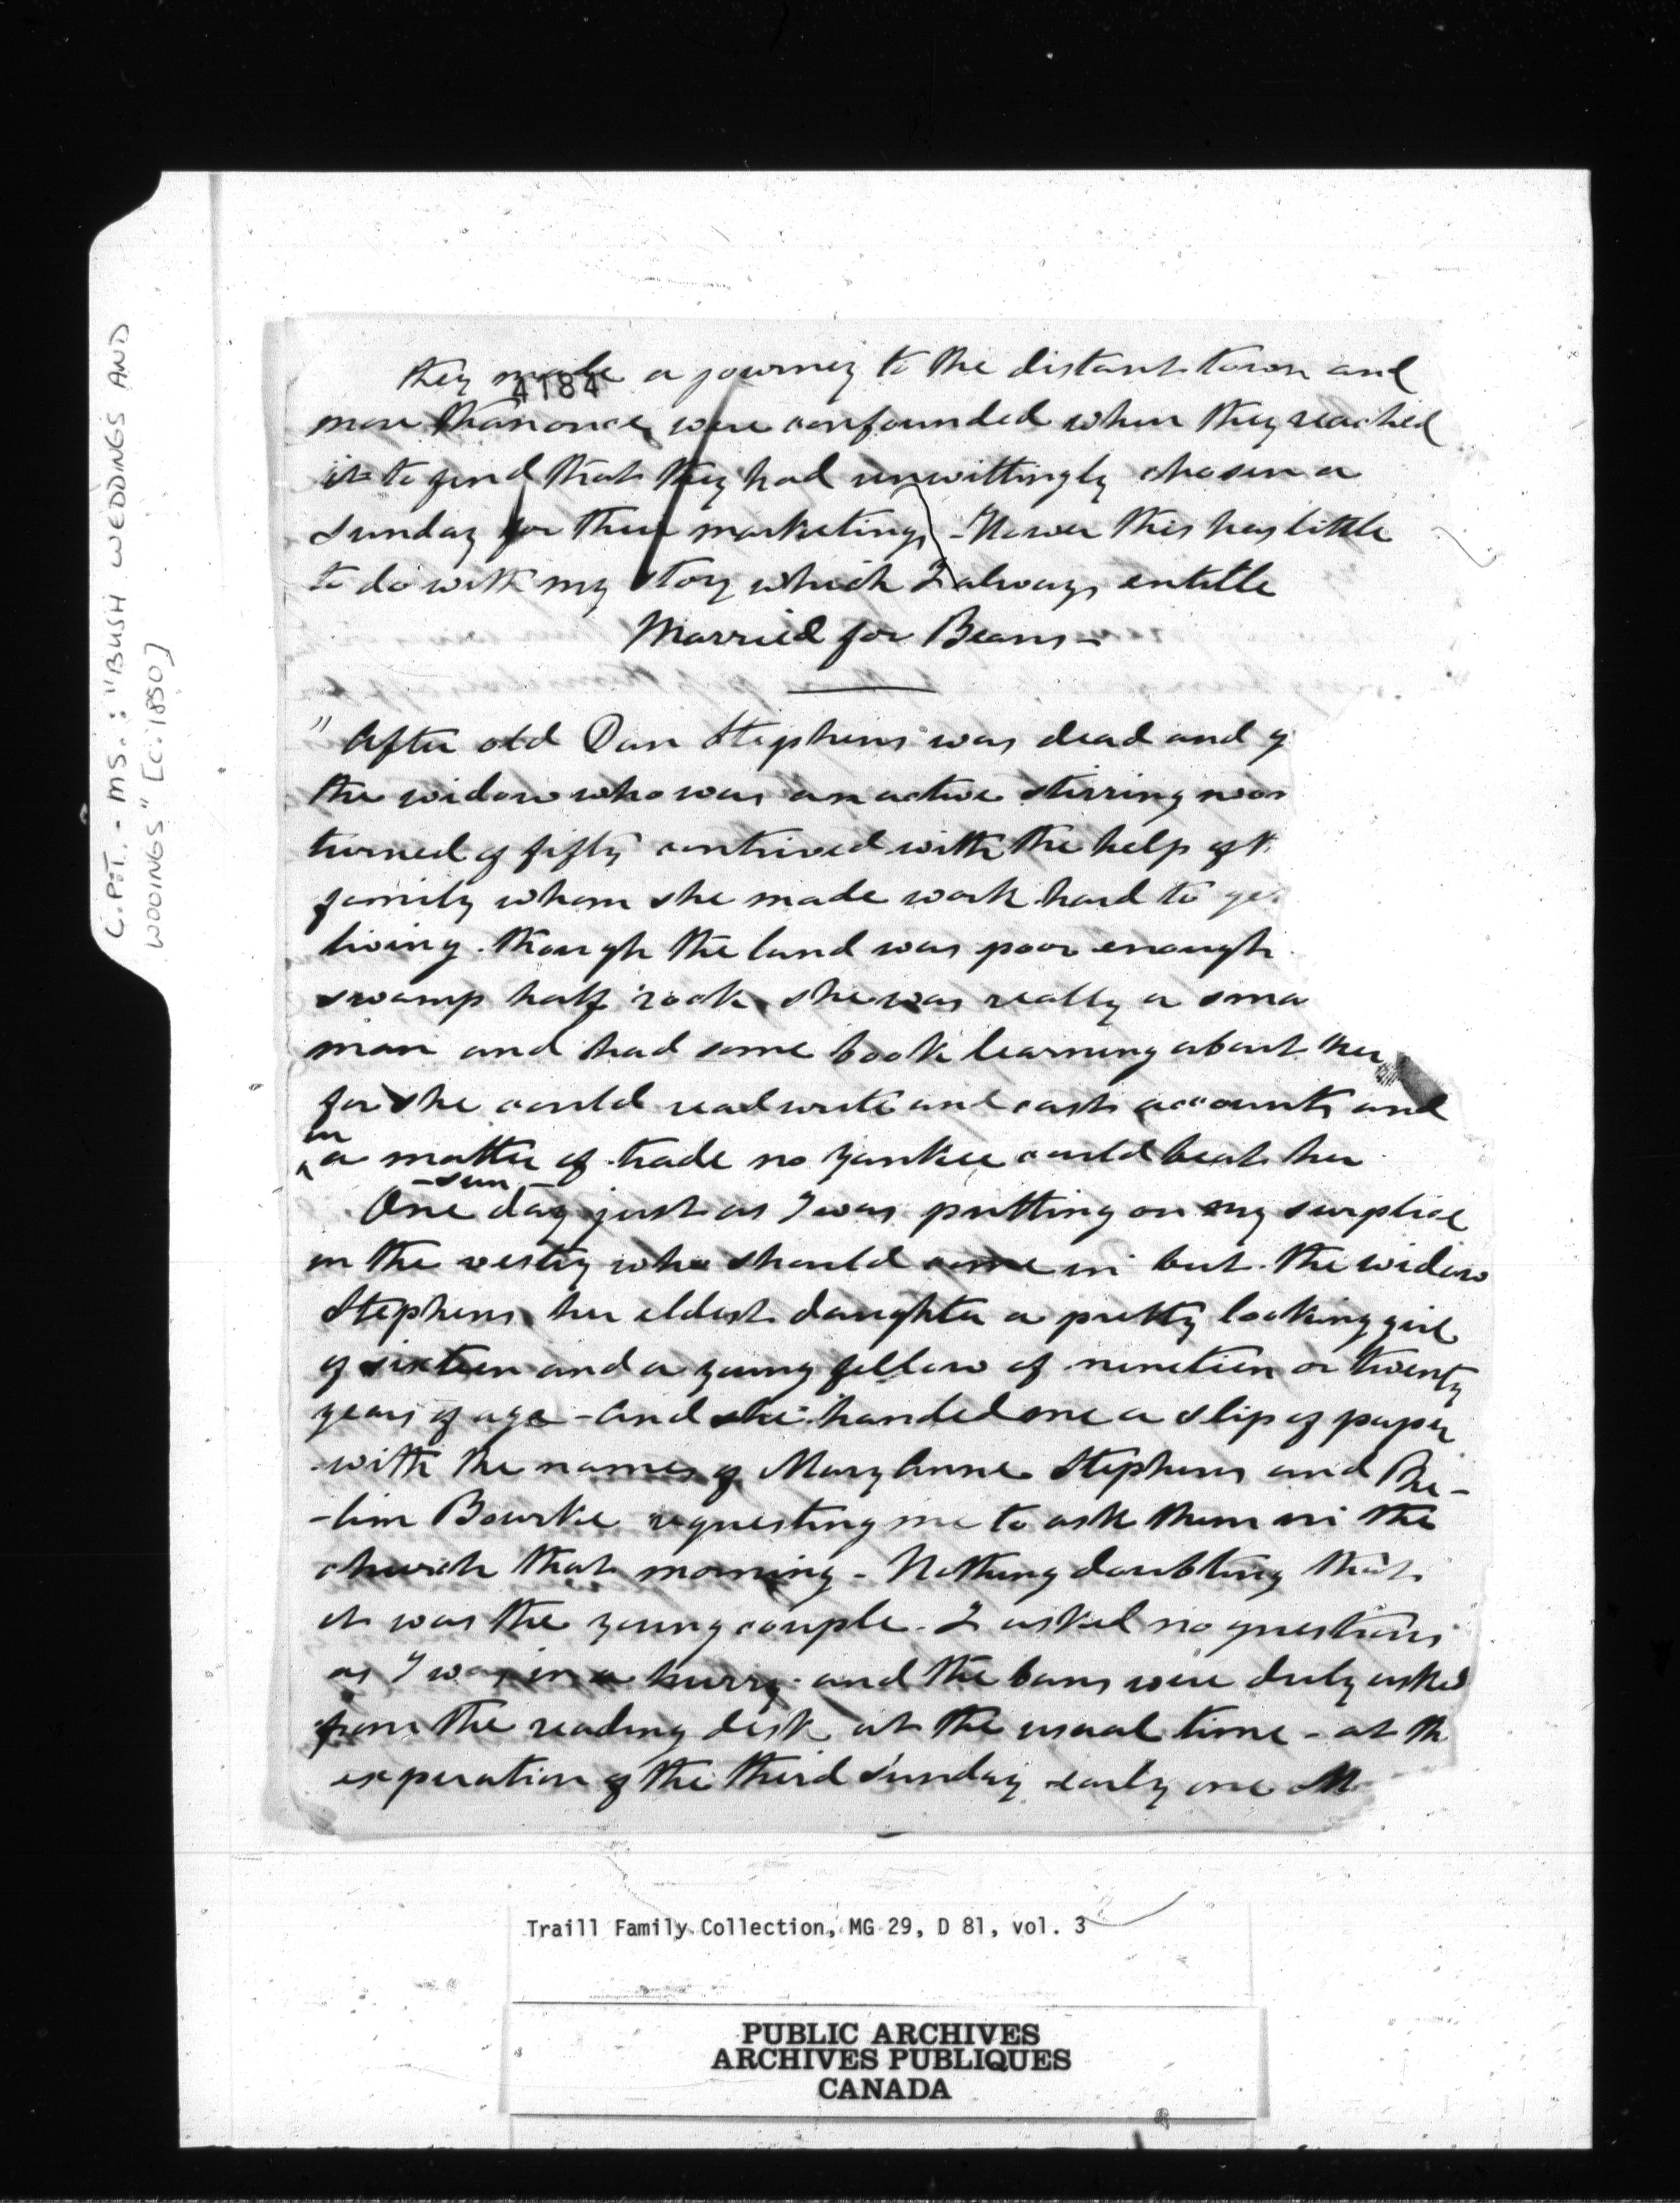 C.P.T. - MS.: "BUSH WEDDINGS AND
WOOINGS" [C. 1850]
4184
they made a journey to the distant town and
more than once were confounded when they reached
it to find that they had unwittingly chosen a
Sunday for their marketing - this has little
to do with my story which I always entitle
Married for Beans -
" After old Dan Stephens was dead and g
the widow who was an active stirring wom
turned of fifty contrived with the help of t
family whom she made work hard to ge
living. though the land was poor enough
swamp half rock she was really a sma
man and had some book learning about her
for she could read write and cast accounts and
in a matter of trade no Yankee could beat her
-Sun-
One day just as I was putting on my surplice
in the vestry who should come in but the widow
Stephens her eldest daughter a pretty looking girl
of sixteen and a young fellow of nineteen or twenty
years of age - and she handed me a slip of paper
with the names of Mary Anne Stephens and Phe-
-lim Bourke requesting me to ask them in the
church that morning - Nothing doubting that
it was the young couple. I asked no questions
as I was in a hurry. and the bans were duly asked
from the reading desk at the usual time - at th
experation of the third Sunday early one M
Traill Family Collection, MG 29, D 81, vol. 3
PUBLIC ARCHIVES
ARCHIVES PUBLIQUES
CANADA